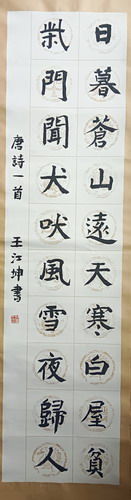 日暮蒼山遠天寒白屋貧
柴門聞犬吠風雪夜歸人
唐詩一首
王江坤書